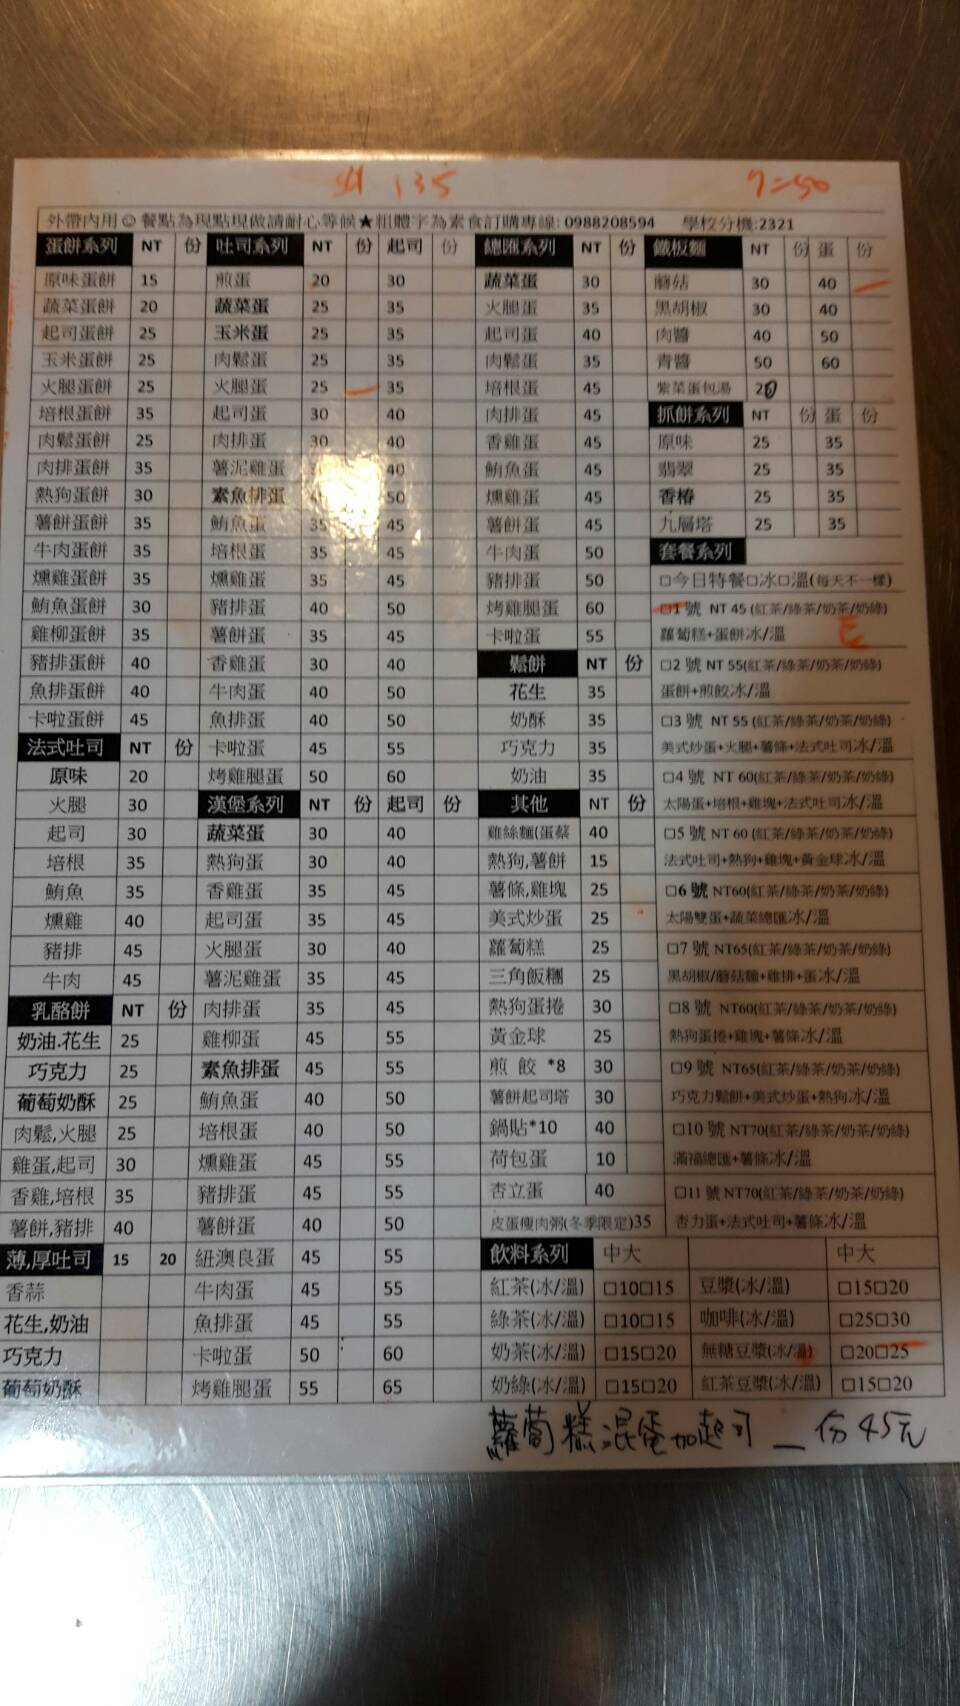 外 135
7:50
外帶內用☺餐點為現點現做請耐心等候★粗體字為素食訂購專線: 0988208594 學校分機:2321
蛋餅系列 NT 份
原味蛋餅 15
蔬菜蛋餅 20
起司蛋餅 25
玉米蛋餅 25
火腿蛋餅 25
培根蛋餅 35
肉鬆蛋餅 25
肉排蛋餅 35
熱狗蛋餅 30
薯餅蛋餅 35
牛肉蛋餅 35
燻雞蛋餅 35
鮪魚蛋餅 30
雞柳蛋餅 35
豬排蛋餅 40
魚排蛋餅 40
卡啦蛋餅 45
法式吐司 NT 份
原味 20
火腿 30
起司 30
培根 35
鮪魚 35
燻雞 40
豬排 45
牛肉 45
乳酪餅 NT 份
奶油.花生 25
巧克力 25
葡萄奶酥 25
肉鬆,火腿 25
雞蛋,起司 30
香雞,培根 35
薯餅,豬排 40
薄,厚吐司 15 20
香蒜
花生,奶油
巧克力
葡萄奶酥
吐司系列 NT 份 起司 份
煎蛋 20 30
蔬菜蛋 25 35
玉米蛋 25 35
肉鬆蛋 25 35
火腿蛋 25 35
起司蛋 30 40
肉排蛋 30 40
薯泥雞蛋 40
素魚排蛋 50
鮪魚蛋 35 45
培根蛋 35 45
燻雞蛋 35 45
豬排蛋 40 50
薯餅蛋 35 45
香雞蛋 30 40
牛肉蛋 40 50
魚排蛋 40 50
卡啦蛋 45 55
烤雞腿蛋 50 60
漢堡系列 NT 份 起司 份
蔬菜蛋 30 40
熱狗蛋 30 40
香雞蛋 35 45
起司蛋 35 45
火腿蛋 30 40
薯泥雞蛋 35 45
肉排蛋 35 45
雞柳蛋 45 55
素魚排蛋 45 55
鮪魚蛋 40 50
培根蛋 40 50
燻雞蛋 45 55
豬排蛋 45 55
薯餅蛋 40 50
紐澳良蛋 45 55
牛肉蛋 45 55
魚排蛋 45 55
卡啦蛋 50 60
烤雞腿蛋 55 65
總匯系列 NT 份
蔬菜蛋 30
火腿蛋 35
起司蛋 40
肉鬆蛋 35
培根蛋 45
肉排蛋 45
香雞蛋 45
鮪魚蛋 45
燻雞蛋 45
薯餅蛋 45
牛肉蛋 50
豬排蛋 50
烤雞腿蛋 60
卡啦蛋 55
鬆餅 NT 份
花生 35
奶酥 35
巧克力 35
奶油 35
其他 NT 份
雞絲麵(蛋蔡 40
熱狗,薯餅 15
薯條,雞塊 25
美式炒蛋 25
蘿蔔糕 25
三角飯糰 25
熱狗蛋捲 30
黃金球 25
煎 餃 *8 30
薯餅起司塔 30
鍋貼*10 40
荷包蛋 10
杏立蛋 40
皮蛋瘦肉粥(冬季限定)35
鐵板麵 NT 份 蛋 份
蘑菇 30 40
黑胡椒 30 40
肉醬 40 50
青醬 50 60
紫菜蛋包湯 20
抓餅系列 NT 份 蛋 份
原味 25 35
翡翠 25 35
香椿 25 35
九層塔 25 35
套餐系列
□今日特餐□冰□溫(每天不一樣)
□1 號 NT 45 (紅茶/綠茶/奶茶/奶綠)
蘿蔔糕+蛋餅冰/溫
□2 號 NT 55(紅茶/綠茶/奶茶/奶綠)
蛋餅+煎餃冰/溫
□3 號 NT 55 (紅茶/綠茶/奶茶/奶綠)
美式炒蛋+火腿+薯條+法式吐司冰/溫
□4 號 NT 60(紅茶/綠茶/奶茶/奶綠)
太陽蛋+培根+雞塊+法式吐司冰/溫
□5 號 NT 60 (紅茶/綠茶/奶茶/奶綠)
法式吐司+熱狗+雞塊+黃金球冰/溫
□6 號 NT60(紅茶/綠茶/奶茶/奶綠)
太陽雙蛋+蔬菜總匯冰/溫
□7 號 NT65(紅茶/綠茶/奶茶/奶綠)
黑胡椒/蘑菇麵+雞排+蛋冰/溫
□8 號 NT60(紅茶/綠茶/奶茶/奶綠)
熱狗蛋捲+雞塊+薯條冰/溫
□9 號 NT65(紅茶/綠茶/奶茶/奶綠)
巧克力鬆餅+美式炒蛋+熱狗冰/溫
□10 號 NT70(紅茶/綠茶/奶茶/奶綠)
滿福總匯+薯條冰/溫
□11 號 NT70(紅茶/綠茶/奶茶/奶綠)
杏力蛋+法式吐司+薯條冰/溫
飲料系列 中大 中大
紅茶(冰/溫) □10□15 豆漿(冰/溫) □15□20
綠茶(冰/溫) □10□15 咖啡(冰/溫) □25□30
奶茶(冰/溫) □15□20 無糖豆漿(冰/溫) □20□25
奶綠(冰/溫) □15□20 紅茶豆漿(冰/溫) □15□20
蘿蔔糕混蛋加起司 一份45元